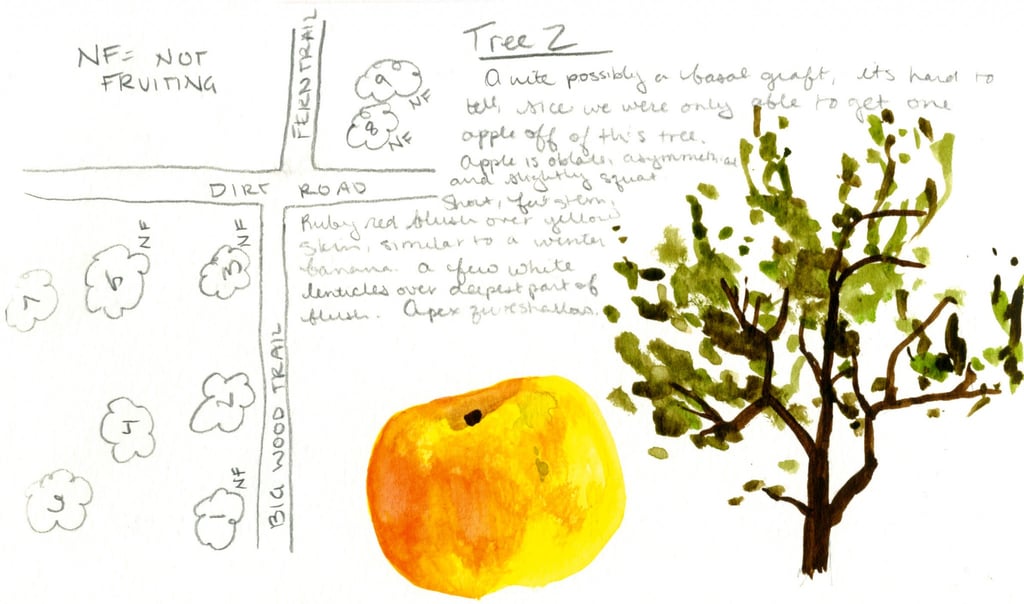 NF= NOT
FRUITING
FERN TRAIL
9
NF
8
NF
DIRT ROAD
NF
5
NF
3
7
2
4
6
NF
1
BIG WOOD TRAIL
Tree 2
Quite possibly a basal graft, its hard to
tell, sice we were only able to get one
apple off of this tree.
Apple is oblate, asymmetrical
and slightly squat
Short, fat stem,
Ruby red blush over yellow
skin, similar to a winter
banana. A few white
lenticles over deepest part of
blush. Apex shallow.